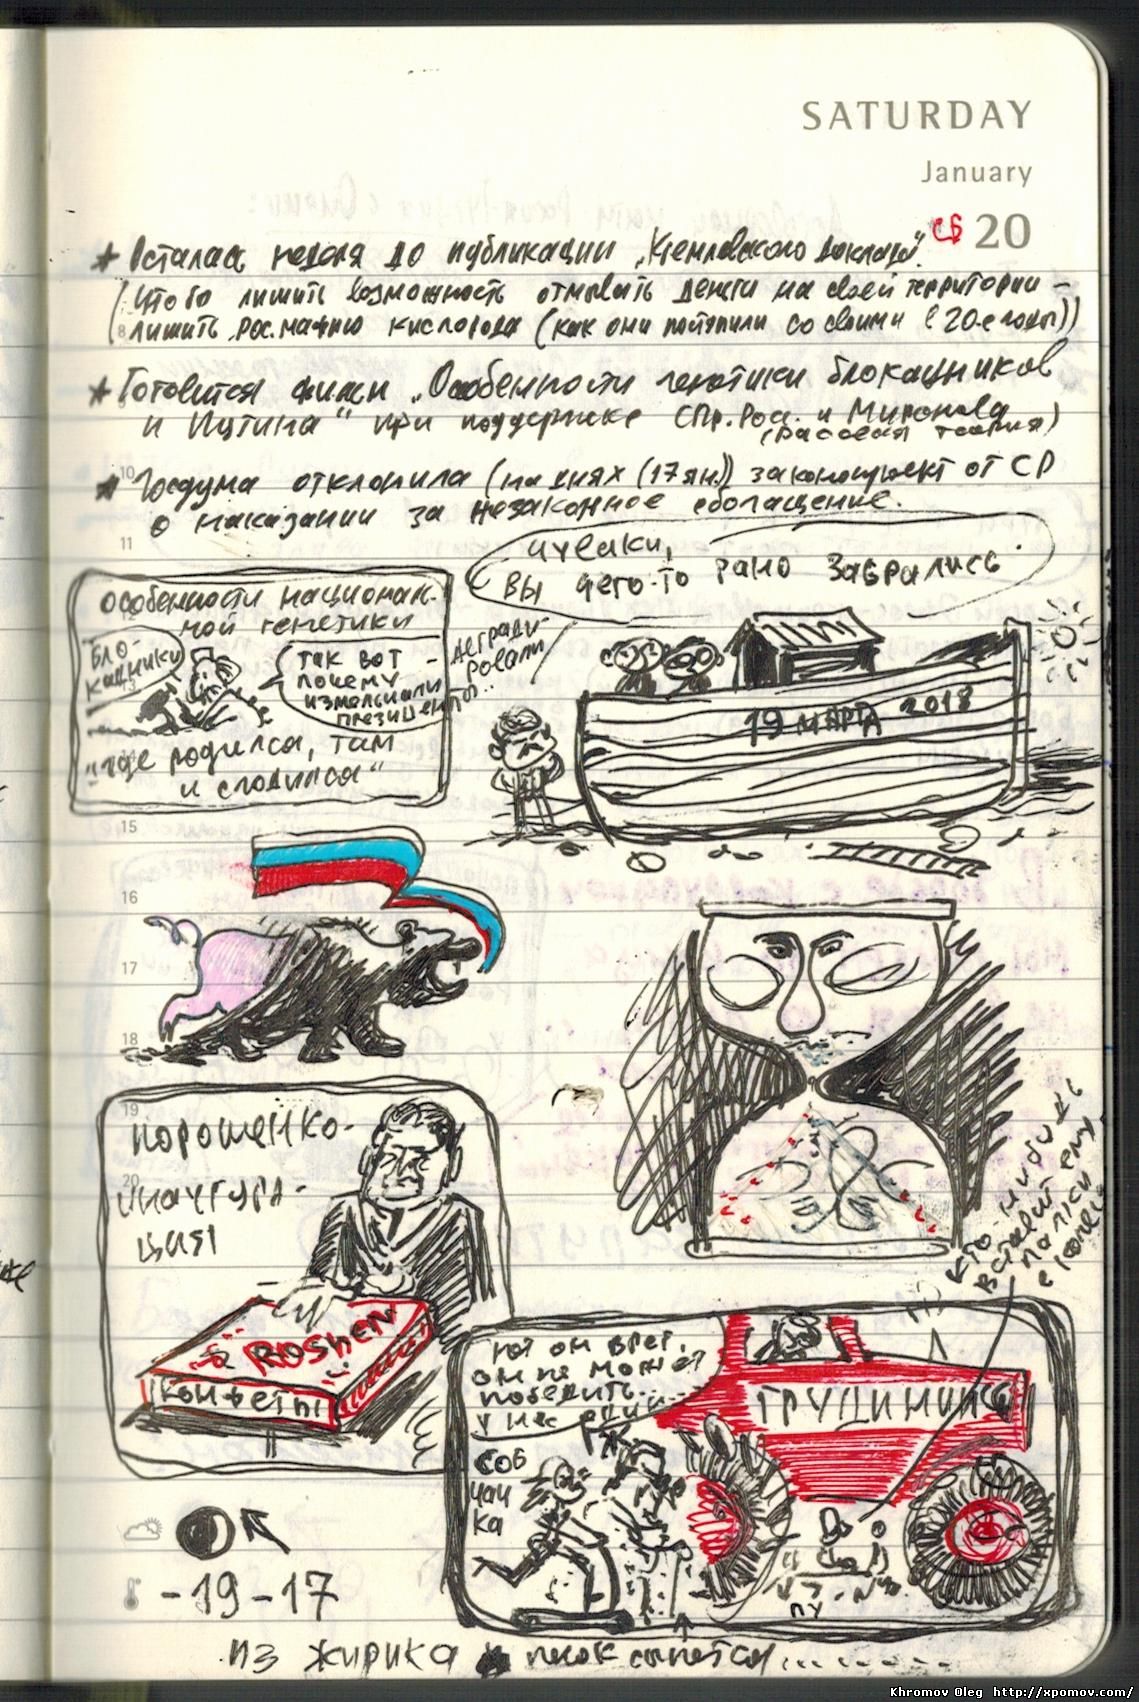 SATURDAY
January
СБ 20
★ Осталась неделя до публикации „Кремлевского доклада".
(Чтобы лишить возможность отмывать деньги на своей территории -
лишить рос.мафию кислорода (как они поступили со своими в 20-е годы))
★ Готовится фильм „Особенности генетики блокадников
и Путина" при поддержке СПр.Рос. и Миронова
(расовая теория)
★ Госдума отклонила (на днях (17 ян.)) законопроект от СР
о наказании за незаконное обогащение.
чуваки,
вы чего-то рано забрались
особенности национальной генетики
блокадники
так вот
почему
измельчали
президенты..
деградировали
"где родился, там
и сгодился"
19 МАРТА 2018
8
10
11
12
13
15
16
17
18
19
20
порошенко-
инаугура-
ция
ROSHEN
конфеты
кто-нибудь
вставит
палки ему
в колеса
он врет,
он не может
победить
у нас один
ГРУДИНИН
СОБ
ЧАЧ
КА
ПУ
-19-17
из жирика песок сыпется.........
Khromov Oleg http://xpomov.com/